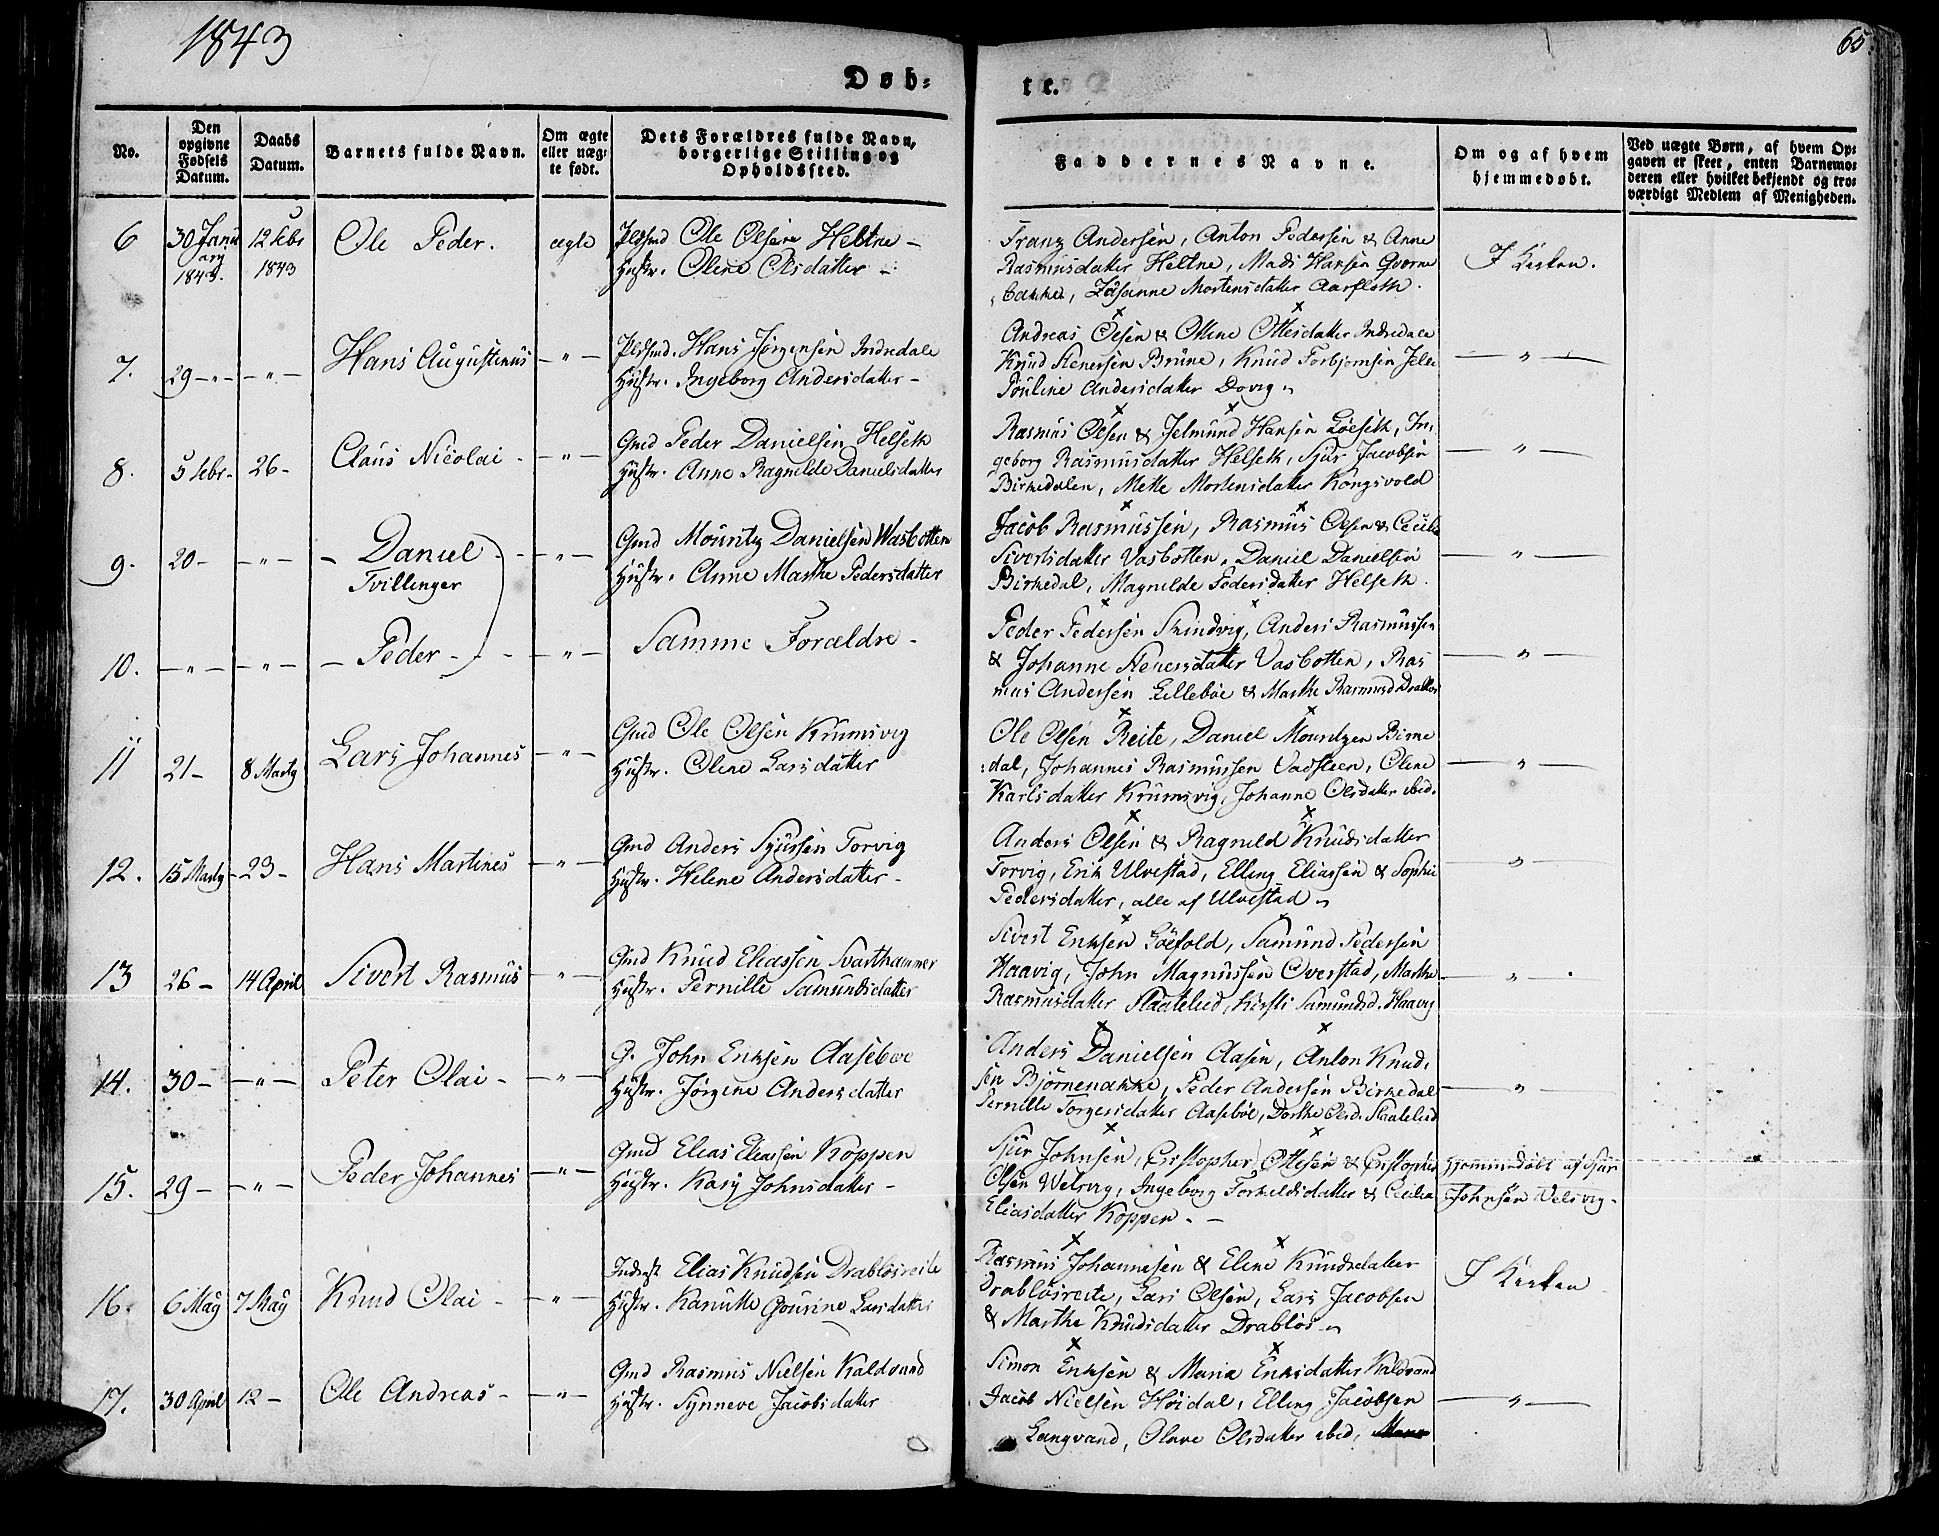 1843
65.
Døb=
te.
No.
Den opgivne Fødsels Datum.
Daabs Datum.
Barnets fulde Navn.
Om ægte eller uæg-te født.
Dets Forældres fulde Navn, borgerlige Stilling og Opholdssted.
Faddernes Navne.
Om og af hvem hjemmedøbt.
Ved uægte Børn, af hvem Op-gaven er skeet, enten Barnemo-deren eller hvilket bekjendt og tro-værdigt Medlem af Menigheden.
6 30 Janu ary 1843. 12 Febr 1843 Ole Peder. ægte Ole Olsen Heltne –
Hustr. Oline Olsdatter –
Franz Andersen, Anton Pedersen & Anne
Rasmusdatter Heltne, Mads Hansen Qvorne
bakke, Zusanne Mortensdatter Aarfloth.
I Kirken.
7. 29 – " – – " – Hans Augustinus – " – Hans Jørgensen Indredale
Hustr. Ingeborg Andersdatter –
Andreas Olsen & Oline Ottesdatter Indredale
Knud Stenersen Brune, Knud Torbjørnsen
Pouline Andersdatter Dovig
– " –
8. 5 Febr – 26 – Claus Nicolai – – " – Gmd Peder Danielsen Helseth
Hustr. Anne Ragnilde Danielsdatter
Rasmus Olsen & Jelmund Hansen Løeseth, In,
geborg Rasmusdatter Helseth, Sjur Jacobsen
Birkedalen, Mette Mortensdatter Kongsvold
– " –
9. 20 – – " – – Daniel – – " – Gmd Mouritz Danielsen Wasbotten
Tvillinger
Hustr. Anne Marthe Pedersdatter
Jacob Rasmussen, Rasmus Olsen & Cecilie
Sivertsdatter Vasbotten, Daniel Danielsen
Birkedal, Magnilde Pedersdatter Helseth.
– " –
10. – " – – " – – Peder – – " – Samme Forældre –
Peder Pedersen Strindvig, Anders Rasmussen
& Johanne Stenersdatter Vasbotten, Ras
mus Andersen Lillebøe & Marthe Rasmusd Drabløs
– " –
11 21 – 8 Marty Lars Johannes – " – Gmd Ole Olsen Krumsvig
Hustr. Oline Larsdatter
Ole Olsen Reite, Daniel Mouritzen Birke
dal, Johannes Rasmussen Vadsteen, Oline
Karlsdatter Krumsvig, Johanne Olsdatter ibid.
– " –
12. 15 Marty – 23 – Hans Martines – " – Gmd Anders Sjursen Torvig
Hustr. Helene Andersdatter –
Anders Olsen & Ragnild Knudsdatter
Torvig, Erik Ulvestad, Elling Eliassen & Sophie
Pedersdatter, alle af Ulvestad
– " –
13 26 – 14 April Sivert Rasmus – " – Gmd Knud Eliassen Svarthammer
Hustr. Pernille Samundsdatter
Sivert Eriksen Løefold, Samund Pedersen
Haavig, John Magnussen Overstad, Marthe
Rasmusdatter Slaatelied, Kirsti Samundsd. Haavig
– " –
14. 30 – – " – Peter Olai – – " – G. John Eriksen Aasebøe
Hustr. Jørgine Andersdatter
Anders Danielsen Aasen, Anton Knud,
sen Bjørnenakke, Peder Andersen Birkedal
Pernille Torgersdatter Aasebøe, Dorthe Olsd. Slaatelied
– " –
15. 29 – – " – Peder Johannes – " – Gmd Elias Eliassen Koppen
Hustr. Kary Johnsdatter –
Sjur Johnsen, Cristopher Ottesen & Cristopher
Olsen Velsvig, Ingeborg Torkildsdatter & Cecilia
Eliasdatter Koppen –
Hjemmedøbt af Sjur
Johnsen Velsvig –
16. 6 May 7 May Knud Olai – – " – Inderst Elias Knudsen Drabløsreite
Hustr. Kanutte Gourine Larsdatter
Rasmus Johannesen & Eline Knudsdatter
Drabløsreite, Lars Olsen, Lars Jacobsen
& Marthe Knudsdatter Drabløs
I Kirken
17. 30 April 12 – Ole Andreas – – " – Gmd Rasmus Nielsen Kaldvand
Hustr. Synneve Jacobsdatter
Simon Eriksen & Maria Eriksdatter Kaldvand
Jacob Nielsen Høidal, Elling Jacobsen
Langvand, Olave Olsdatter ibid,
– " –